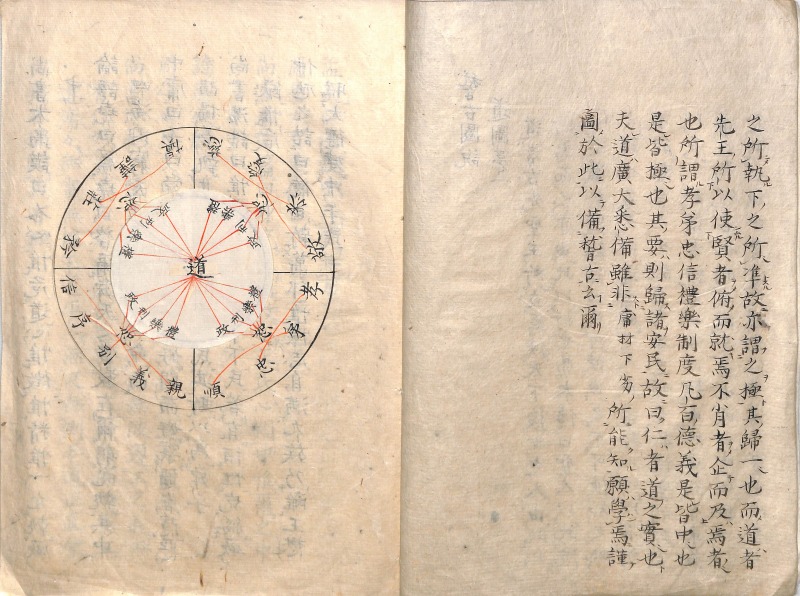 之所執下之所準故亦謂之極其歸一也而道者
先王所以使賢者俯而就焉不肖者企而及焉者
也所謂孝弟忠信禮樂制度凡百德義是皆中也
是皆極也其要則歸諸安民故曰仁者道之實也
夫道廣大悉備雖非庸材下劣所能知願學焉謹
圖於此以備稽古云爾
道
禮樂刑政
禮樂刑政
禮樂刑政
禮樂刑政
恭
敬
孝
弟
忠
順
親
義
別
序
信
莊
謹
慎